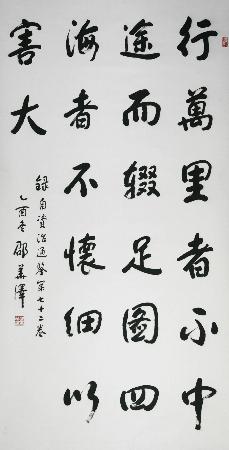 行萬里者不中
途而輟足圖四
海者不懷細以
害大
錄自資治通鑒第七十二卷
乙酉冬 邵華澤